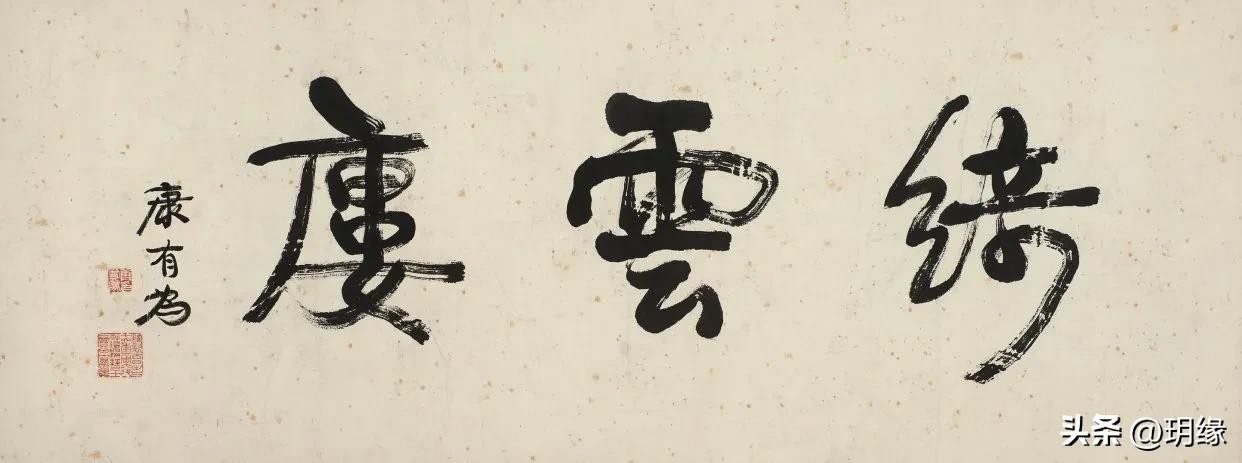 綺雲廔
康有為
头条 @玥缘